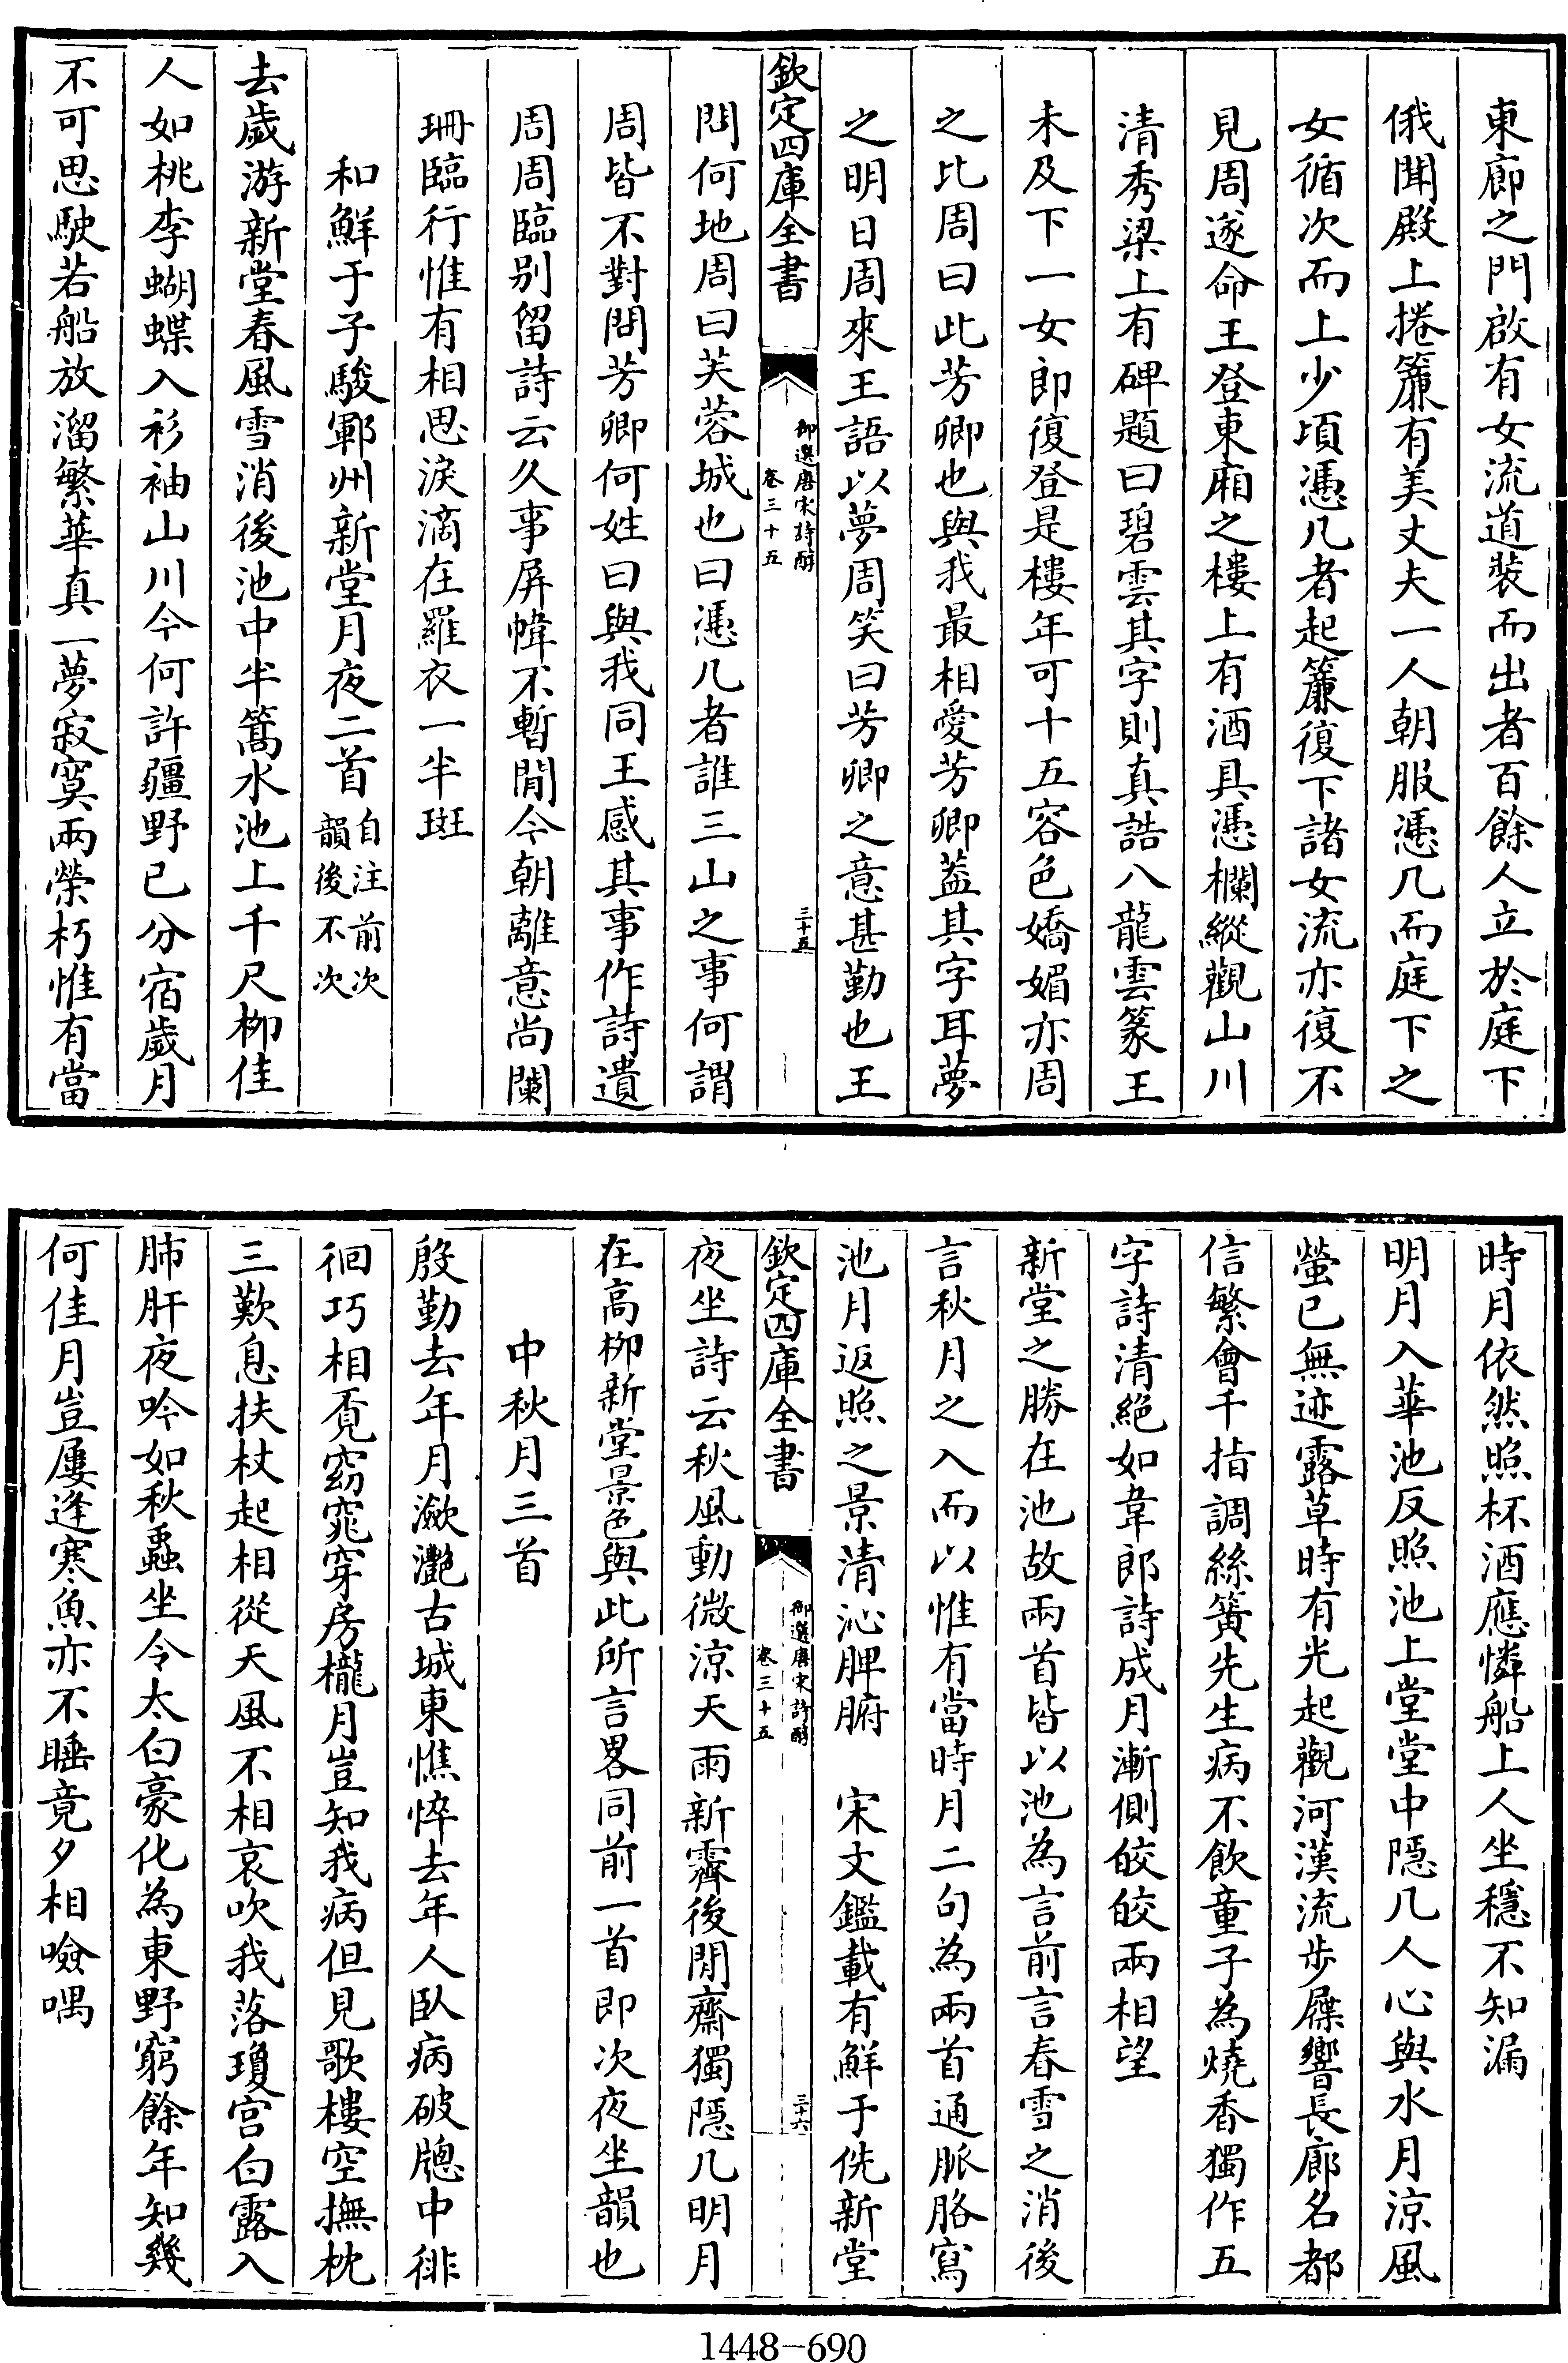 東廊之門啟有女流道裝而出者百餘人立於庭下
俄聞殿上捲簾有美丈夫一人朝服憑几而庭下之
女循次而上少頃憑几者起簾復下諸女流亦復不
見周遂命王登東廂之樓上有酒具憑欄縱觀山川
清秀梁上有碑題曰碧雲其字則真誥八龍雲篆王
未及下一女郎復登是樓年可十五容色嬌媚亦周
之比周曰此芳卿也與我最相愛芳卿葢其字耳夢
之明日周來王語以夢周笑曰芳卿之意甚勤也王
欽定四庫全書
御選唐宋詩醇
卷三十五
三十五
問何地周曰芙蓉城也曰憑几者誰三山之事何謂
周皆不對問芳卿何姓曰與我同王感其事作詩遺
周周臨别留詩云久事屏幃不暫閒今朝離意尚闌
珊臨行惟有相思淚滴在羅衣一半斑
和鮮于子駿鄆州新堂月夜二首自注前次
韻後不次
去歲游新堂春風雪消後池中半篙水池上千尺栁佳
人如桃李蝴蝶入衫袖山川今何許疆野已分宿歲月
不可思駛若船放溜繁華真一夢寂寞兩榮朽惟有當
時月依然照杯酒應憐船上人坐穩不知漏
明月入華池反照池上堂堂中隱几人心與水月涼風
螢已無迹露草時有光起觀河漢流步屧響長廊名都
信繁會千指調絲簧先生病不飲童子為燒香獨作五
字詩清絕如韋郎詩成月漸側皎皎兩相望
新堂之勝在池故兩首皆以池為言前言春雪之消後
言秋月之入而以惟有當時月二句為兩首通脈胳寫
池月返照之景清沁脾腑　宋文鑑載有鮮于侁新堂
欽定四庫全書
御選唐宋詩醇
卷三十五
三十六
夜坐詩云秋風動微涼天雨新霽後閒齋獨隱几明月
在高栁新堂景色與此所言畧同前一首即次夜坐韻也
中秋月三首
殷勤去年月瀲灩古城東憔悴去年人臥病破牕中徘
徊巧相覔窈窕穿房櫳月豈知我病但見歌樓空撫枕
三歎息扶杖起相從天風不相哀吹我落瓊宫白露入
肺肝夜吟如秋蟲坐令太白豪化為東野窮餘年知幾
何佳月豈屢逢寒魚亦不睡竟夕相噞喁
1448-690